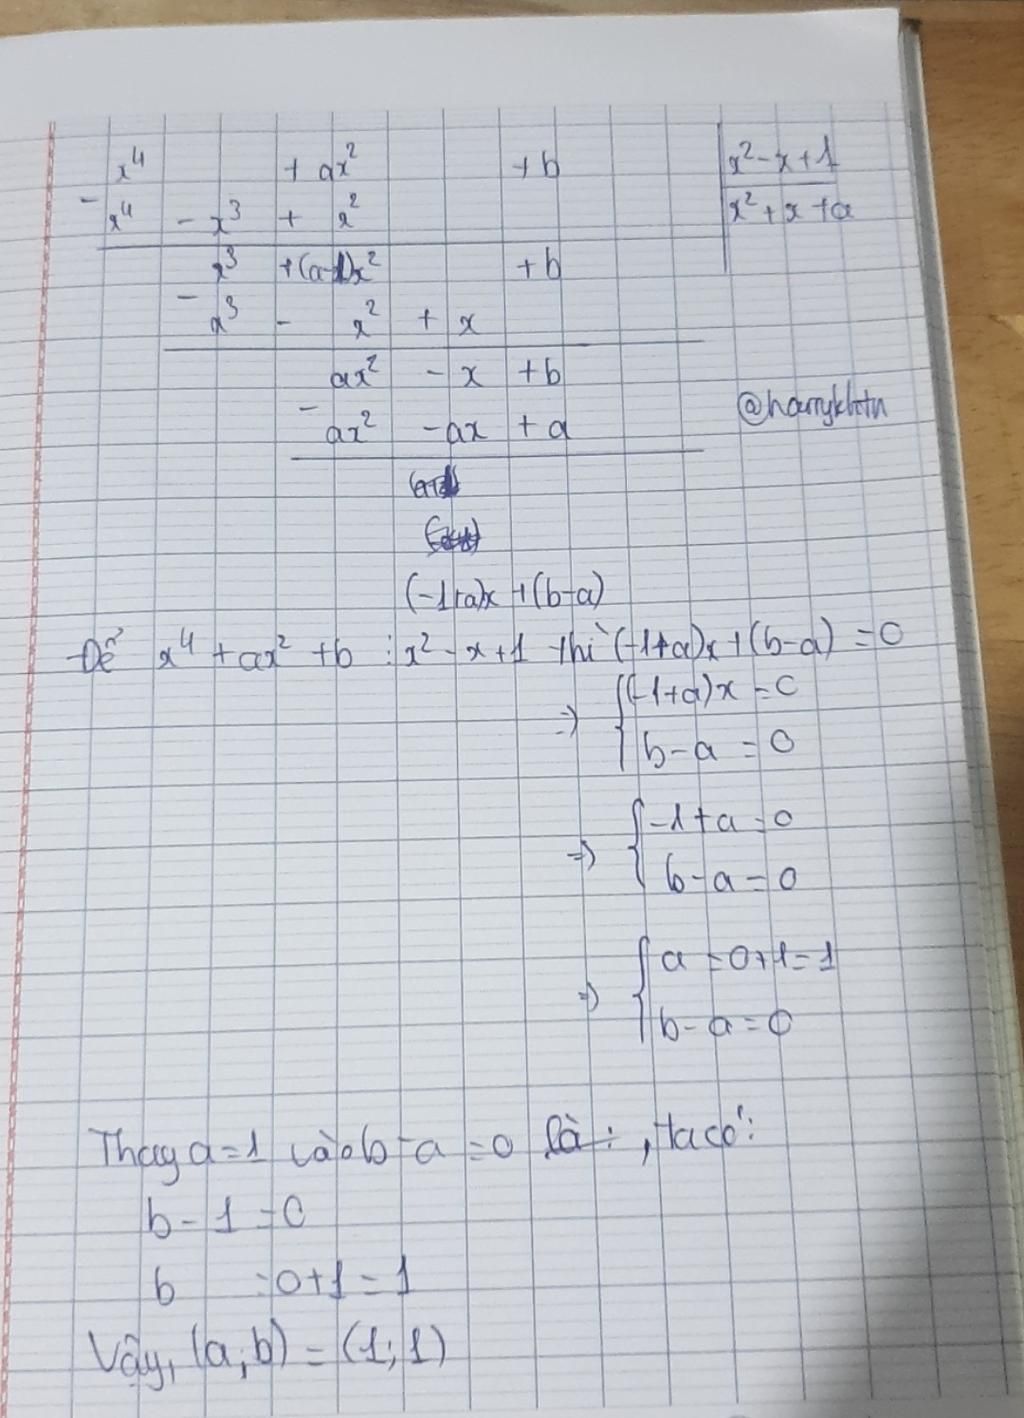 x⁴ + ax² + b | x² - x + 1
- x⁴ - x³ + x² | x² + x + a
x³ + (a-1)x² + b
- x³ - x² + x
ax² - x + b
@harrykhtn
- ax² - ax + a
(-1+a)x + (b-a)
Để x⁴ + ax² + b ⋮ x² - x + 1 thì (-1+a)x + (b-a) = 0
⇒ { (-1+a)x = 0
b - a = 0
⇒ { -1 + a = 0
b - a = 0
⇒ { a = 0+1 = 1
b - a = 0
Thay a = 1 vào b - a = 0 , ta có:
b - 1 = 0
b = 0+1 = 1
Vậy, (a; b) = (1; 1)